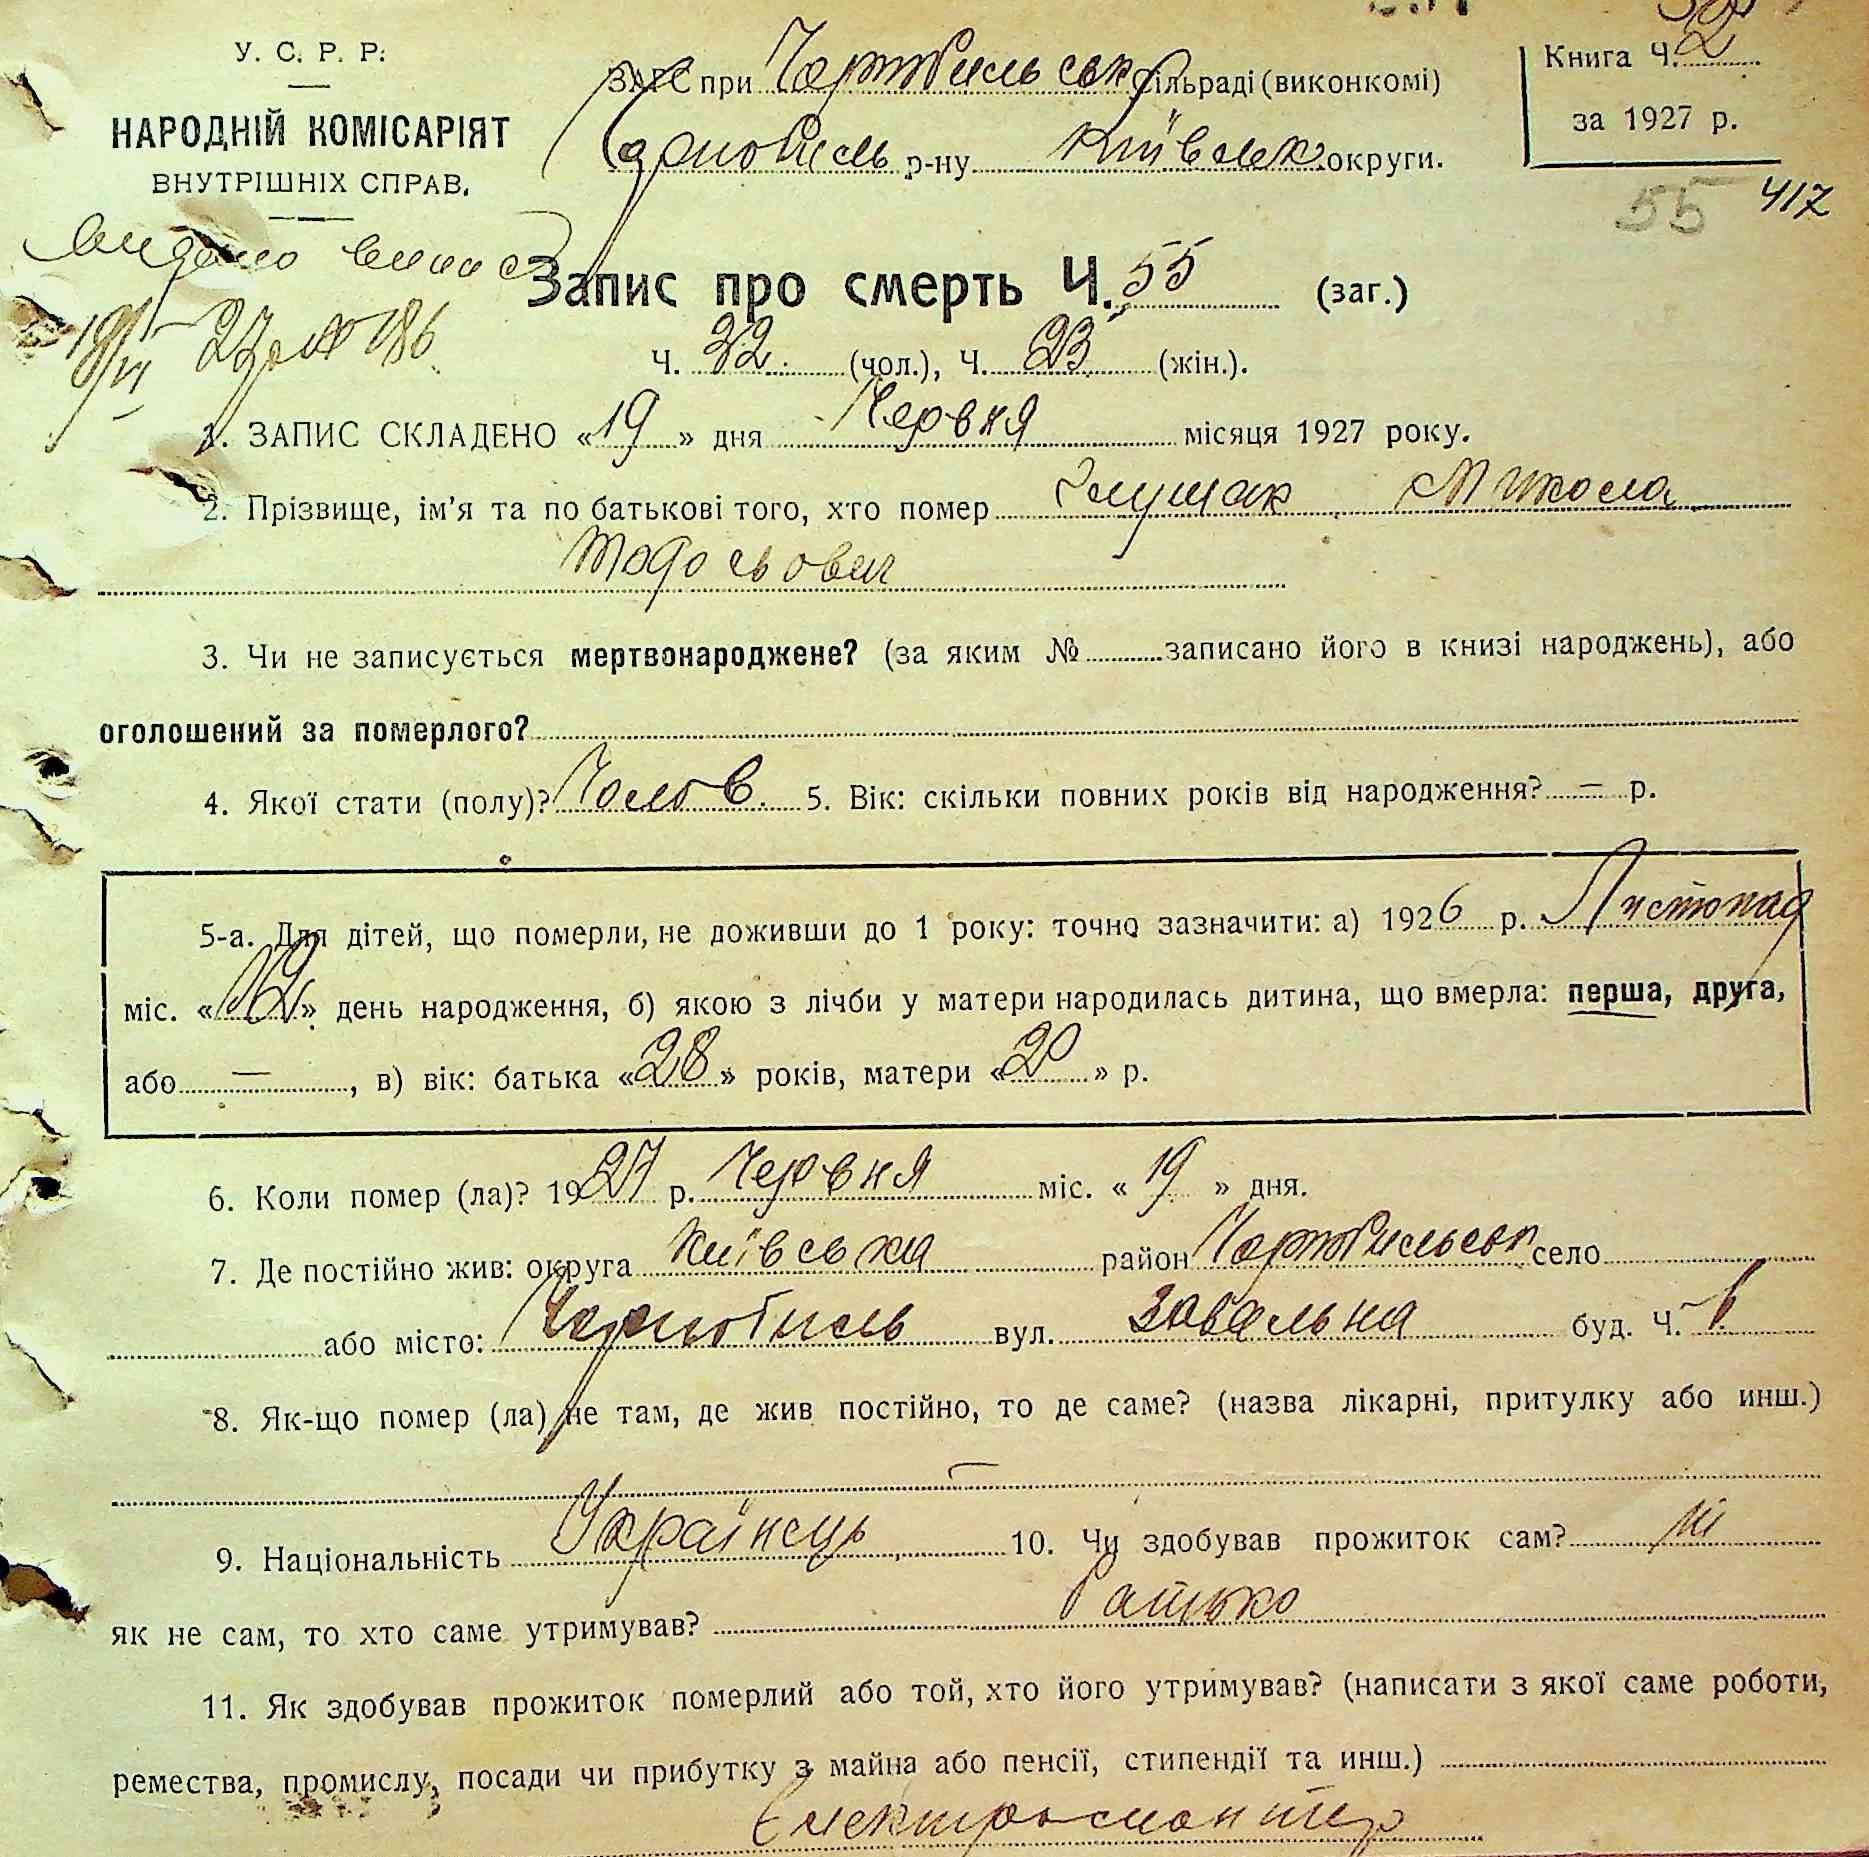 У. С. Р. Р.
НАРОДНІЙ КОМІСАРІЯТ
ВНУТРІШНІХ СПРАВ.
ЗАГС при Чорнобильськ сільраді (виконкомі)
Чорнобиль р-ну Київськ округи.
Книга Ч. 2
за 1927 р.
55 417
Видано випис
18/VI 27 р № 186
Запис про смерть Ч. 55 (заг.)
Ч. 32 (чол.), Ч. 23 (жін.).
1. ЗАПИС СКЛАДЕНО «19» дня Червня місяця 1927 року.
2. Прізвище, ім'я та по батькові того, хто помер Глущак Микола
Тодосьович
3. Чи не записується мертвонароджене? (за яким № записано його в книзі народжень), або
оголошений за померлого?
4. Якої стати (полу)? Чолов. 5. Вік: скільки повних років від народження? — р.
5-а. Для дітей, що померли, не доживши до 1 року: точно зазначити: а) 1926 р. Листопад
міс. «12» день народження, б) якою з лічби у матери народилась дитина, що вмерла: перша, друга,
або — , в) вік: батька «28» років, матери «20» р.
6. Коли помер (ла)? 1927 р. Червня міс. «19» дня.
7. Де постійно жив: округа Київська район Чорнобильськ село
або місто: Чорнобиль вул. Завальна буд. Ч.
8. Як-що помер (ла) не там, де жив постійно, то де саме? (назва лікарні, притулку або инш.)
—
9. Національність Українець 10. Чи здобував прожиток сам? ні
як не сам, то хто саме утримував? Батько
11. Як здобував прожиток померлий або той, хто його утримував? (написати з якої саме роботи,
ремества, промислу, посади чи прибутку з майна або пенсії, стипендії та инш.)
Електромонтер